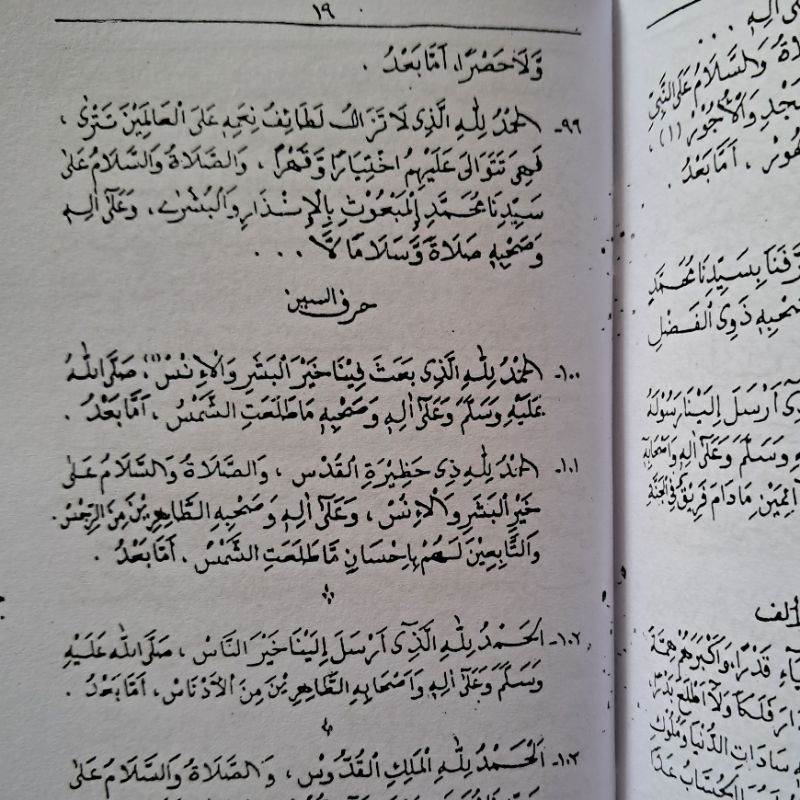 ١٩
وَّلَا حَصْرًا، اَمَّا بَعْدُ .
٩٩- اَلْحَمْدُ لِلّٰهِ الَّذِى لَا تَزَالُ لَطَائِفُ نِعَمِهِ عَلَى الْعَالَمِيْنَ تَتْرٰى ،
فَهِىَ تَتَوَالَى عَلَيْهِمُ اخْتِيَارًا وَّقَهْرًا ، وَالصَّلَاةُ وَالسَّلَامُ عَلٰى
سَيِّدِنَا مُحَمَّدٍ اِلْمَبْعُوْثِ بِالْاِنْذَارِ وَالْبُشْرٰى ، وَعَلٰى اٰلِهٖ
وَصَحْبِهٖ صَلَاةً وَّسَلَامًا لَّا ...
حرف السين
١٠٠- اَلْحَمْدُ لِلّٰهِ الَّذِى بَعَثَ فِيْنَا خَيْرَ الْبَشَرِ وَالْاِنْسْ (١)، صَلَّى اللّٰهُ
عَلَيْهِ وَسَلَّمَ وَعَلٰى اٰلِهٖ وَصَحْبِهٖ مَا طَلَعَتِ الشَّمْسُ ، اَمَّا بَعْدُ .
١٠١- اَلْحَمْدُ لِلّٰهِ ذِى حَظِيْرَةِ الْقُدْسِ ، وَالصَّلَاةُ وَالسَّلَامُ عَلٰى
خَيْرِ الْبَشَرِ وَالْاِنْسْ ، وَعَلٰى اٰلِهٖ وَصَحْبِهِ الطَّاهِرِيْنَ مِنَ الرِّجْسْ.
وَالتَّابِعِيْنَ لَهُمْ بِاِحْسَانٍ مَّا طَلَعَتِ الشَّمْسُ ، اَمَّا بَعْدُ .
١٠٢- اَلْحَمْدُ لِلّٰهِ الَّذِىْ اَرْسَلَ اِلَيْنَا خَيْرَ النَّاسْ ، صَلَّى اللّٰهُ عَلَيْهِ
وَسَلَّمَ وَعَلٰى اٰلِهٖ وَاَصْحَابِهِ الطَّاهِرِيْنَ مِنَ الْاَدْنَاسْ ، اَمَّا بَعْدُ .
١٠٣- اَلْحَمْدُ لِلّٰهِ الْمَلِكِ الْقُدُّوْسْ ، وَالصَّلَاةُ وَالسَّلَامُ عَلٰى
لٰى اٰلِهٖ ...
وَالسَّلَامُ عَلَى النَّبِيِّ
وَالْاُجُوْرْ (١) ،
، اَمَّا بَعْدُ .
بِسَيِّدِنَا مُحَمَّدٍ
ذَوِى الْفَضْلِ
اَرْسَلَ اِلَيْنَا رَسُوْلَهُ
وَسَلَّمَ وَعَلٰى اٰلِهٖ وَاَصْحَابِهٖ
مَادَامَ فَرِيْقٌ فِى الْجَنَّةِ
قَدْرًا، وَاَكْبَرَهُمْ هِمَّةً
فَلَكًا وَّلَا اَطْلَعَ بَدْرًا
سَادَاتِ الدُّنْيَا وَمُلُوْكِ